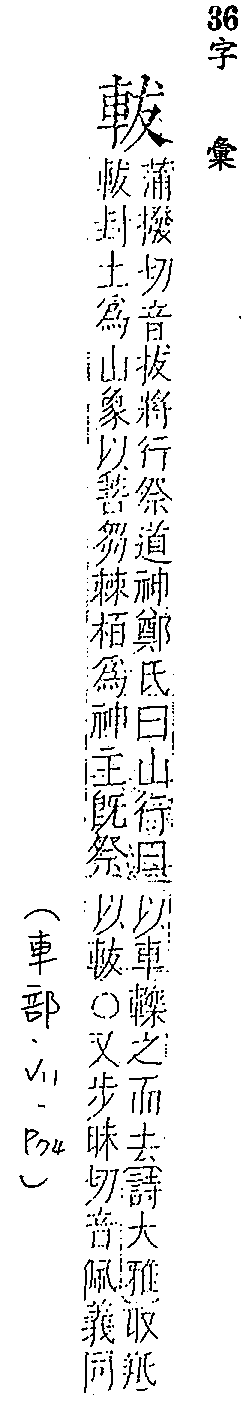 36字 彙
軷
蒲撥切音拔將行祭道神鄭氏曰山行曰
軷封土爲山象以菩芻棘栢爲神主旣祭
以車轢之而去詩大雅取羝
以軷○又步昧切音佩義同
（車部·VII-P74）